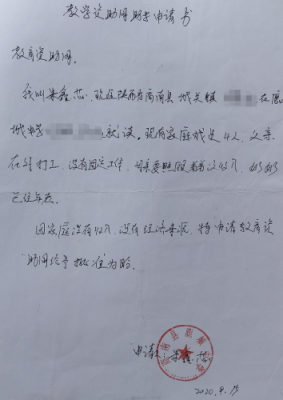 教学资助网助学申请书
教育资助网。
我叫朱鑫芯，现在陕西省商南县城关镇 在
城中学 就读。现有家庭成员4人，父亲
在外打工，没有固定工作，母亲要照顾 没收入，奶奶
已经年老。
因家庭没有收入，没有经济来源，特申请教育资
助网给予批准为盼
申请人：朱鑫芯
2020.9.15